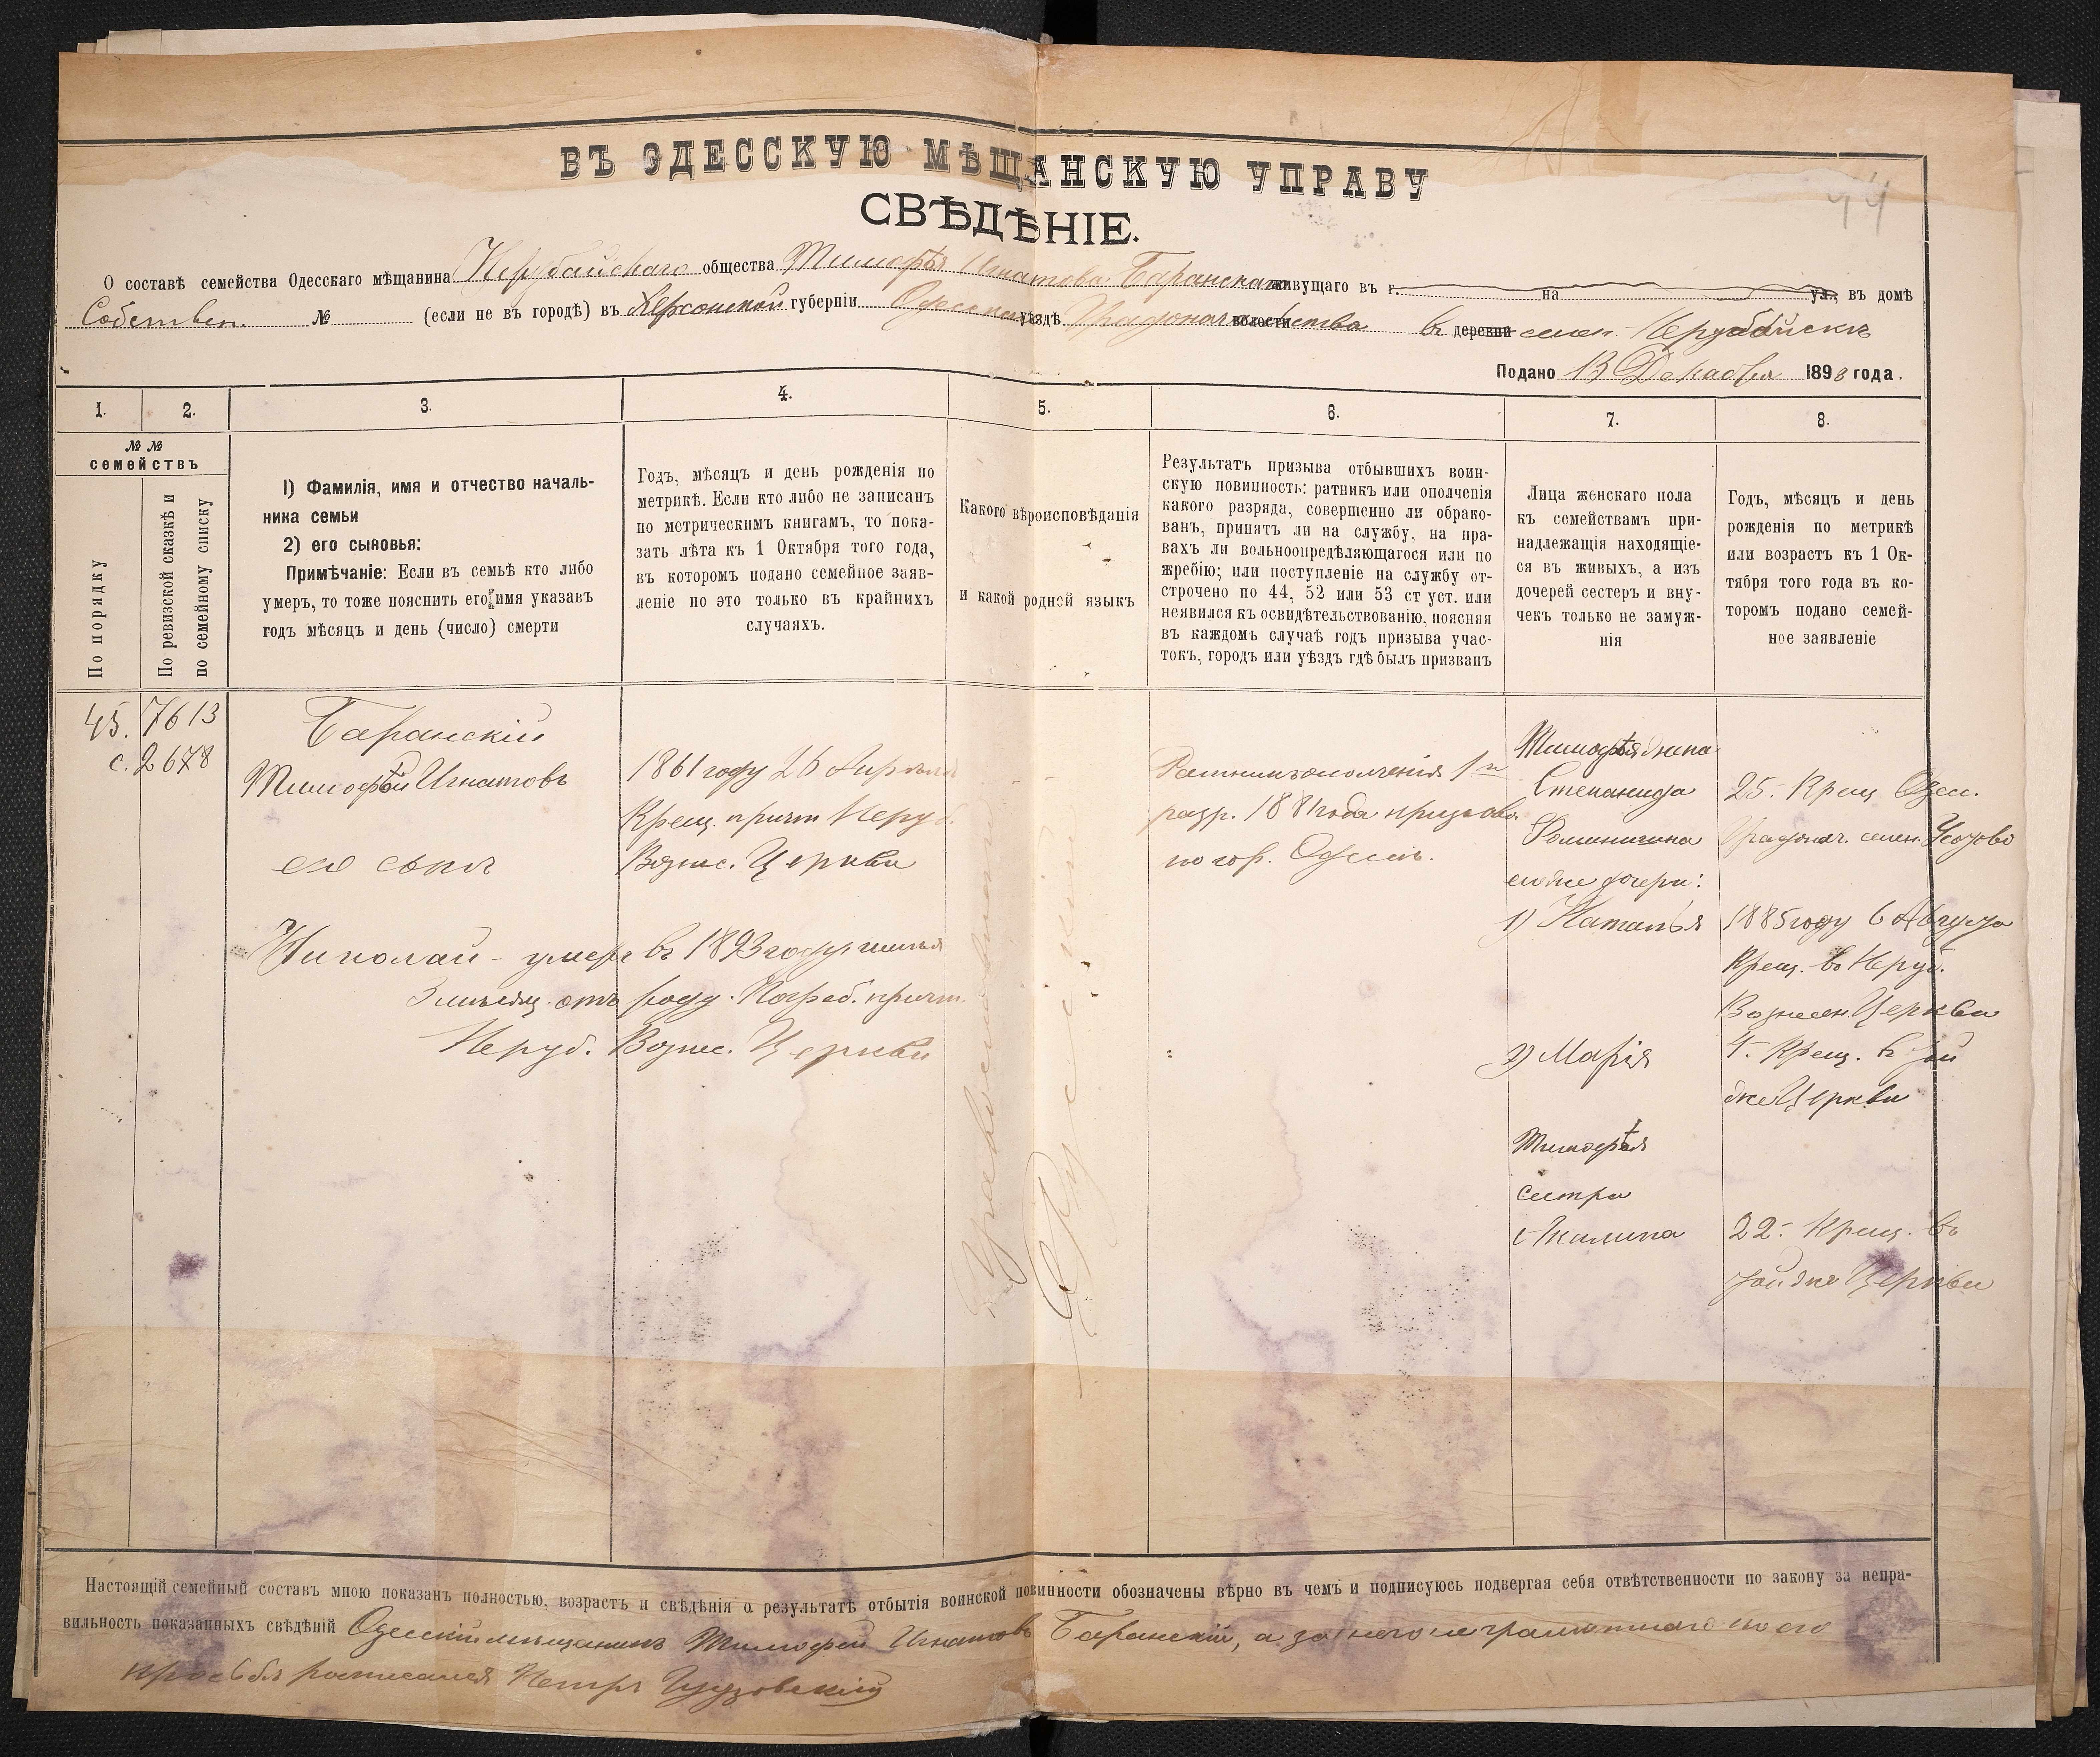 94
ВЪ ОДЕССКУЮ МѢЩАНСКУЮ УПРАВУ
СВѢДѢНІЕ.
О составѣ семейства Одесскаго мѣщанина Нерубайскаго общества Тимофѣя Игнатова Баранскаго живущаго въ г. на ул., въ домѣ
Собствен. № (если не въ городѣ) въ Херсонской губерніи Одесскаго уѣздѣ Градоначальства волости въ деревни селен. Нерубайскъ
Подано 13 Декабря 1893 года.
1. 2. 3. 4. 5. 6. 7. 8.
№ №
семействъ
По порядку
По ревизской сказкѣ и
по семейному списку
1) Фамилія, имя и отчество началь-
ника семьи
2) его сыновья:
Примѣчаніе: Если въ семьѣ кто либо
умеръ, то тоже пояснить его имя указавъ
годъ мѣсяцъ и день (число) смерти
Годъ, мѣсяцъ и день рожденія по
метрикѣ. Если кто либо не записанъ
по метрическимъ книгамъ, то пока-
зать лѣта къ 1 Октября того года,
въ которомъ подано семейное заяв-
леніе но это только въ крайнихъ
случаяхъ.
Какого вѣроисповѣданія
и какой родной языкъ
Результатъ призыва отбывшихъ воин-
скую повинность: ратникъ или ополченія
какого разряда, совершенно ли обрако-
ванъ, принятъ ли на службу, на пра-
вахъ ли вольноопредѣляющагося или по
жребію; или поступленіе на службу от-
строчено по 44, 52 или 53 ст уст. или
неявился къ освидѣтельствованію, поясняя
въ каждомъ случаѣ годъ призыва учас-
токъ, городъ или уѣздъ гдѣ былъ призванъ
Лица женскаго пола
къ семействамъ при-
надлежащія находящіе-
ся въ живыхъ, а изъ
дочерей сестеръ и вну-
чекъ только не замуж-
нія
Годъ, мѣсяцъ и день
рожденія по метрикѣ
или возрастъ къ 1 Ок-
тября того года въ ко-
торомъ подано семей-
ное заявленіе
45. 7613
с. 2678
Баранскій
Тимофѣй Игнатовъ
его сынъ
Николай - умеръ въ 1893 году имѣя
3 мѣсяц. отъ роду. Погреб. причт.
Неруб. Вознес. Церкви
1861 году 26 Апрѣля
Крещ. причт Неруб.
Вознес. Церкви
Православнаго
Русскій
Ратникъ ополченія 1го
разр. 1881 года призыва
по гор. Одессѣ.
Тимофѣя жена
Степанида
Фоминична
ихже дочери:
1) Наталья
2) Марія
Тимофѣя
сестра
Акилина
25. Крещ Одес.
Градонач. селен. Усатово
1885 году 6 Августа
Крещ. въ Неруб.
Вознесен. Церкви
4. Крещ. въ той
же Церкви
22. Крещ. въ
той же Церкви
Настоящій семейный составъ мною показанъ полностью, возрастъ и свѣдѣнія о результатѣ отбытія воинской повинности обозначены вѣрно въ чемъ и подписуюсь подвергая себя отвѣтственности по закону за непра-
вильность показанныхъ свѣдѣній Одесскій мѣщанинъ Тимофей Игнатовъ Баранскій, а за него неграмотнаго по его
просьбѣ росписался Петръ